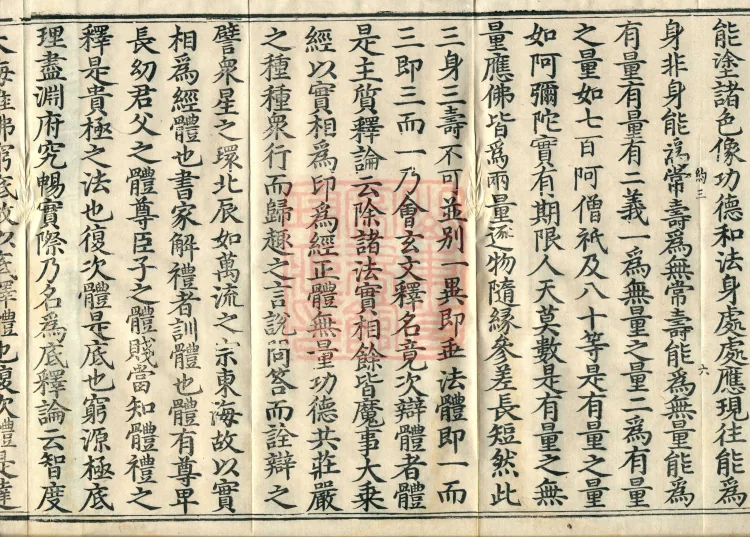 能塗諸色像功德和法身處處應現往能爲
約三
六
身非身能爲常壽爲無常壽能爲無量能爲
有量有量有二義一爲無量之量二爲有量
之量如七百阿僧祇及八十等是有量之量
如阿彌陀實有期限人天莫數是有量之無
量應佛皆爲兩量逐物隨緣參差長短然此
三身三壽不可並別一異即乖法體即一而
三即三而一乃會玄文釋名竟次辯體者體
是主質釋論云除諸法實相餘皆魔事大乘
經以實相爲印爲經正體無量功德共莊嚴
之種種衆行而歸趣之言說問答而詮辯之
譬衆星之環北辰如萬流之宗東海故以實
相爲經體也書家解禮者訓體也體有尊卑
長幼君父之體尊臣子之體賤當知體禮之
釋是貴極之法也復次體是底也窮源極底
理盡淵府究暢實際乃名爲底釋論云智度
大海唯佛窮底故以底釋體也復次體是達